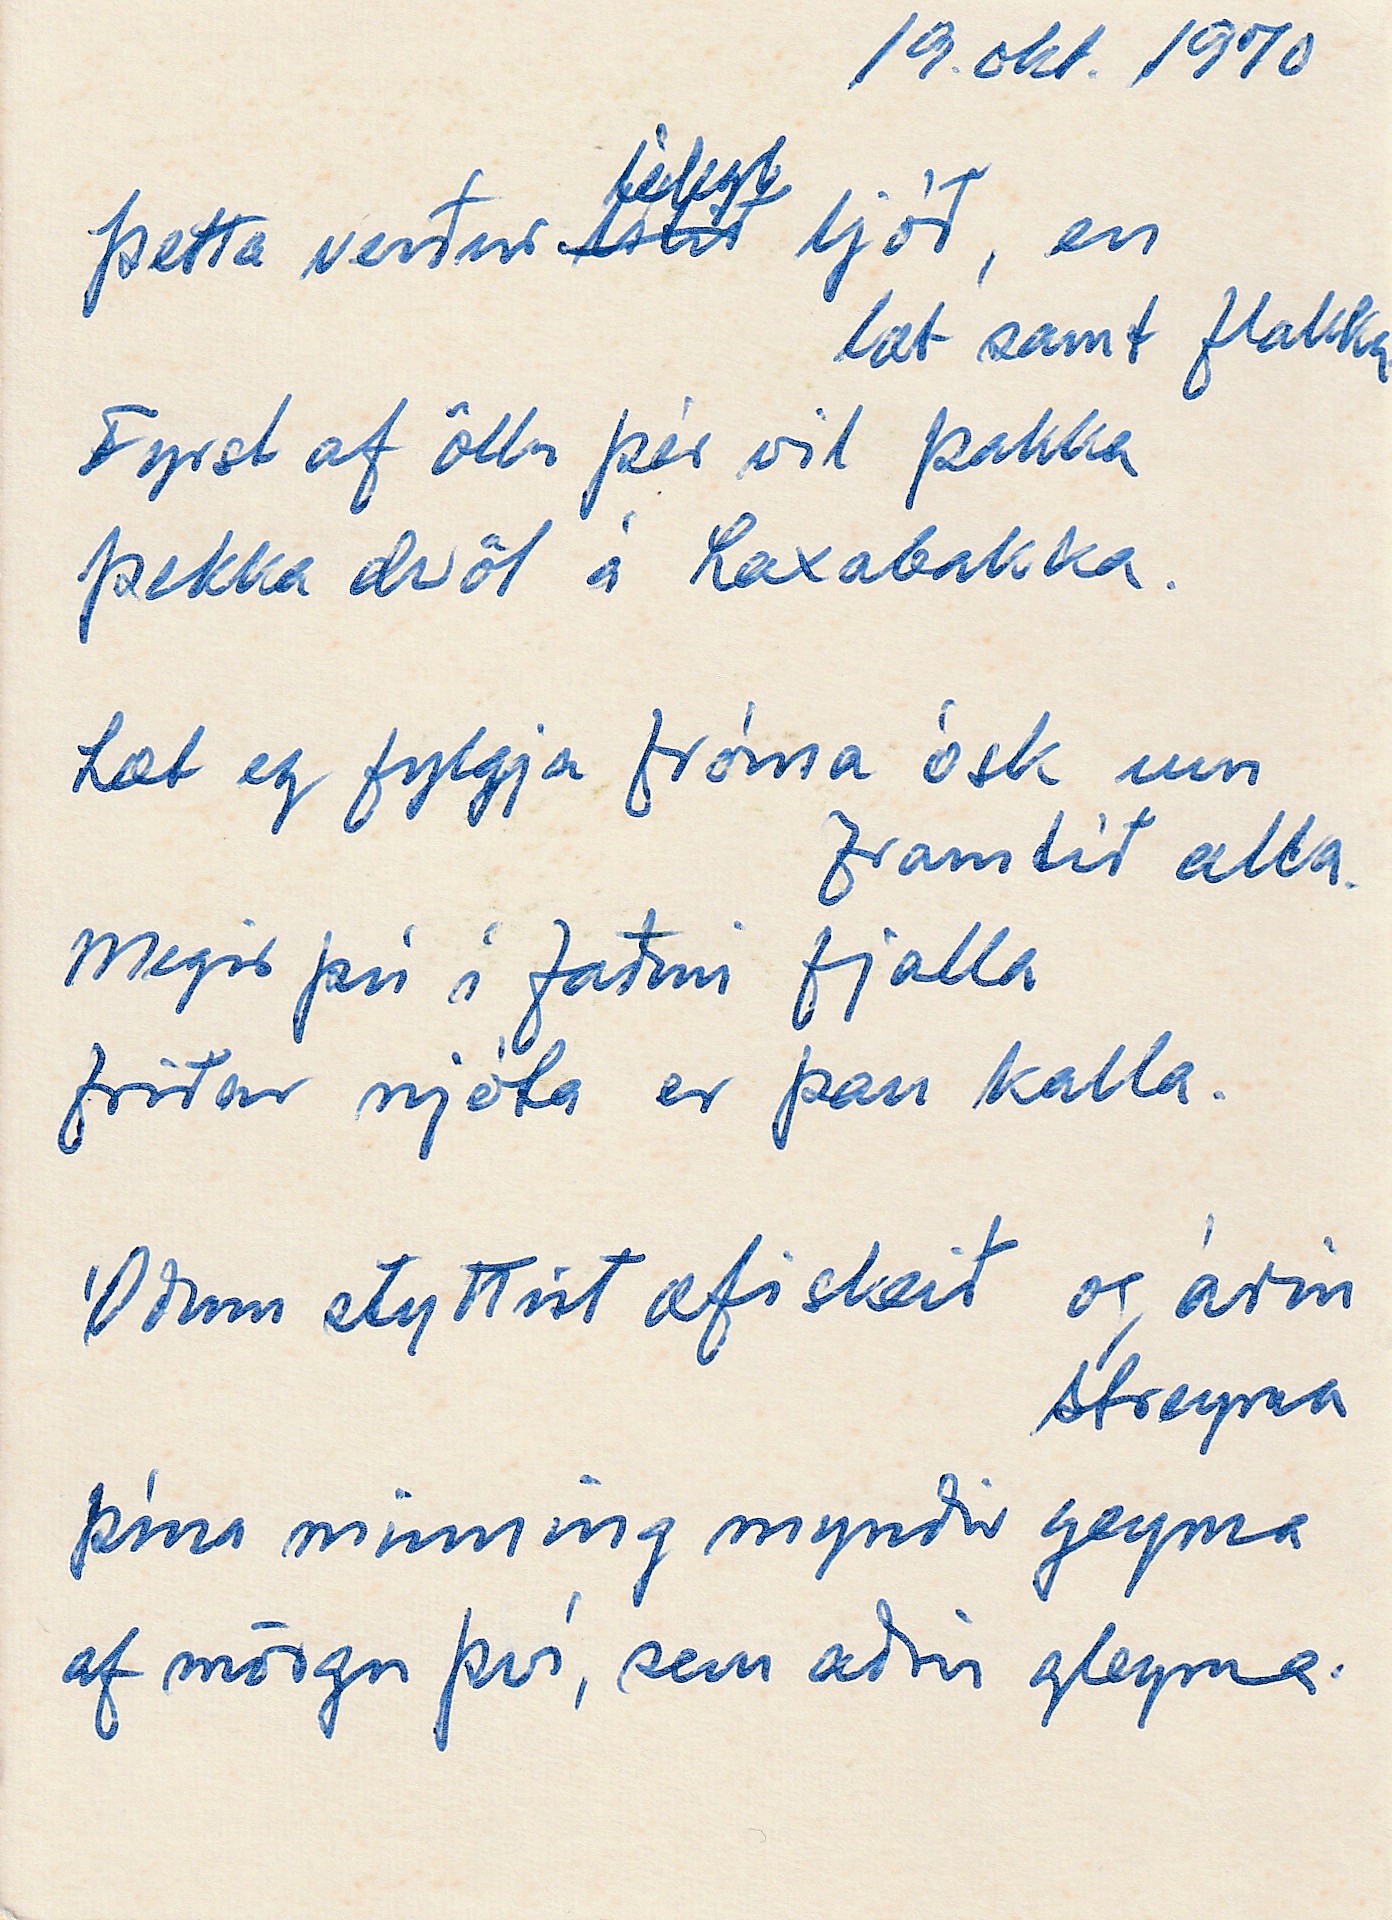 19. okt. 1970
Þetta verður lélegt ljóð, en
læt samt flakka
Fyrst af öllu þér vil þakka
þekka dvöl á Laxabakka.
Læt eg fylgja fróma ósk um
framtíð alla.
Megir þú í faðmi fjalla
friðar njóta er þau kalla.
Óðum styttist æfiskeið og árin
streyma
þína minning myndir geyma
af mörgu því, sem aðrir gleyma.